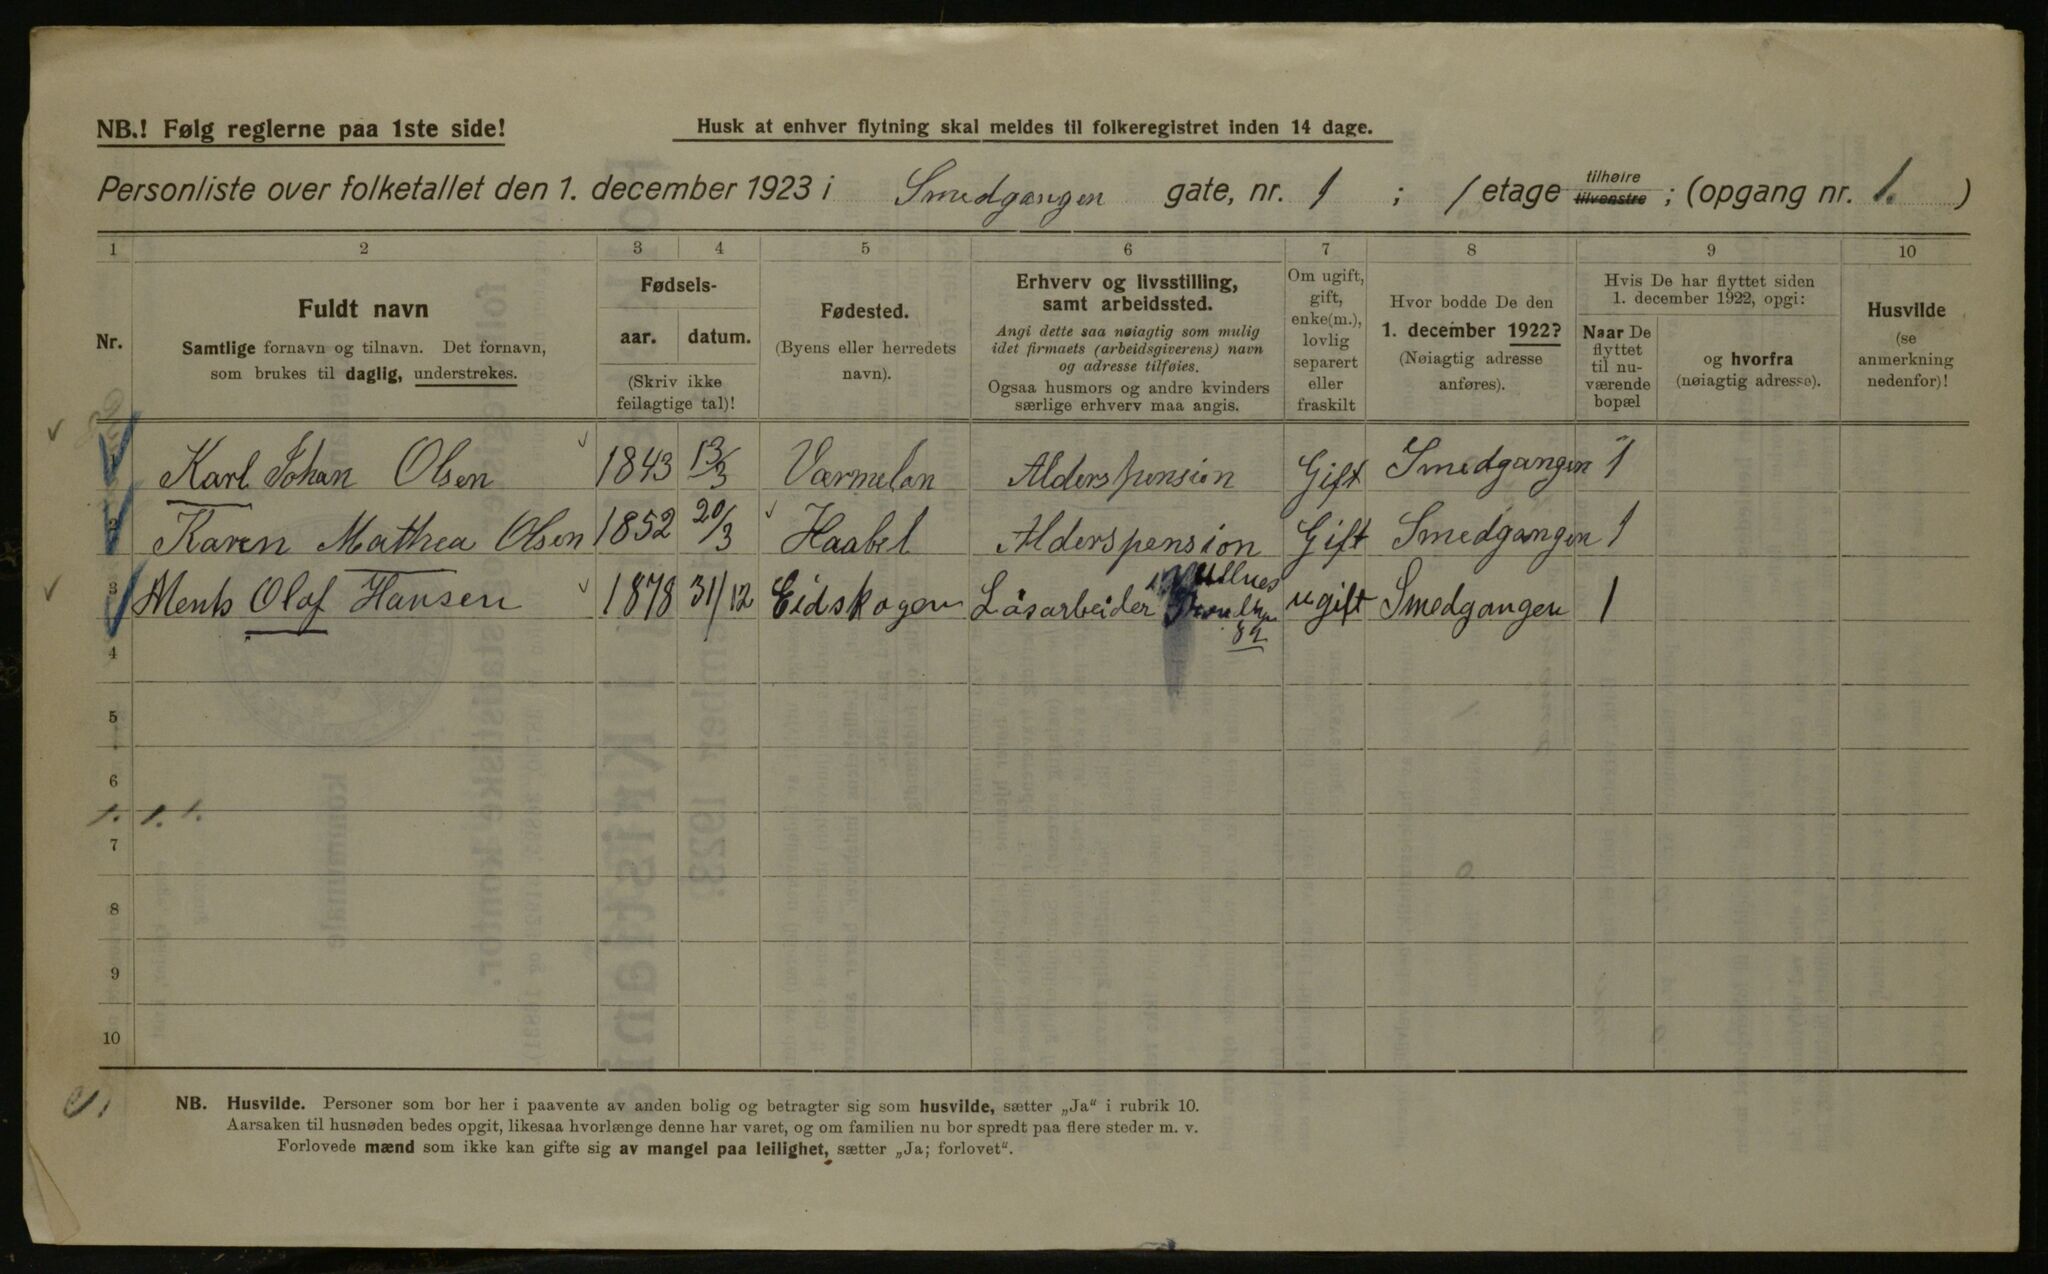 NB.! Følg reglerne paa 1ste side!
Husk at enhver flytning skal meldes til folkeregistret inden 14 dage.
Personliste over folketallet den 1. december 1923 i Smedgangen gate, nr. 1 ; 1 etage tilhøire tilvenstre ; (opgang nr. 1. )
1 2 3 4 5 6 7 8 9 10
Nr.
Fuldt navn
Samtlige fornavn og tilnavn. Det fornavn,
som brukes til daglig, understrekes.
Fødsels-
aar. datum.
(Skriv ikke
feilagtige tal)!
Fødested.
(Byens eller herredets
navn).
Erhverv og livsstilling,
samt arbeidssted.
Angi dette saa nøiagtig som mulig
idet firmaets (arbeidsgiverens) navn
og adresse tilføies.
Ogsaa husmors og andre kvinders
særlige erhverv maa angis.
Om ugift,
gift,
enke(m.),
lovlig
separert
eller
fraskilt
Hvor bodde De den
1. december 1922?
(Nøiagtig adresse
anføres).
Hvis De har flyttet siden
1. december 1922, opgi:
Naar De
flyttet
til nu-
værende
bopæl
og hvorfra
(nøiagtig adresse).
Husvilde
(se
anmerkning
nedenfor)!
1 Karl Johan Olsen 1843 13/3 Værmelan Alderspension Gift Smedgangen 1
2 Karen Mathea Olsen 1852 20/3 Haabel Alderspension Gift Smedgangen 1
3 Ments Olaf Hansen 1878 31/12 Eidskogen Løsarbeider ugift Smedgangen 1
4
5
6
1. 1. 1.
7
8
9
10
NB. Husvilde. Personer som bor her i paavente av anden bolig og betragter sig som husvilde, sætter „Ja“ i rubrik 10.
Aarsaken til husnøden bedes opgit, likesaa hvorlænge denne har varet, og om familien nu bor spredt paa flere steder m. v.
Forlovede mænd som ikke kan gifte sig av mangel paa leilighet, sætter „Ja; forlovet“.